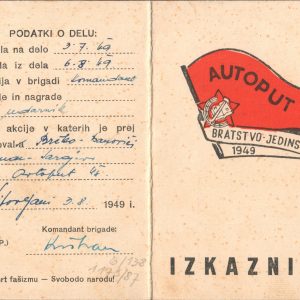 PODATKI O DELU:
la na delo 3.7.49
la iz dela 6.8.49
ija v brigadi komandant
je in nagrade
udarnik
akcije v katerih je prej
oval-a Brčko-Banoviči
Šamac-Sarajevo
Avtoput 48
3.8. 1949 i.
Komandant brigade:
P.)
8/138
87
rt fašizmu — Svobodo narodu!
AUTOPUT
BRATSTVO-JEDINS
1949
IZKAZNI